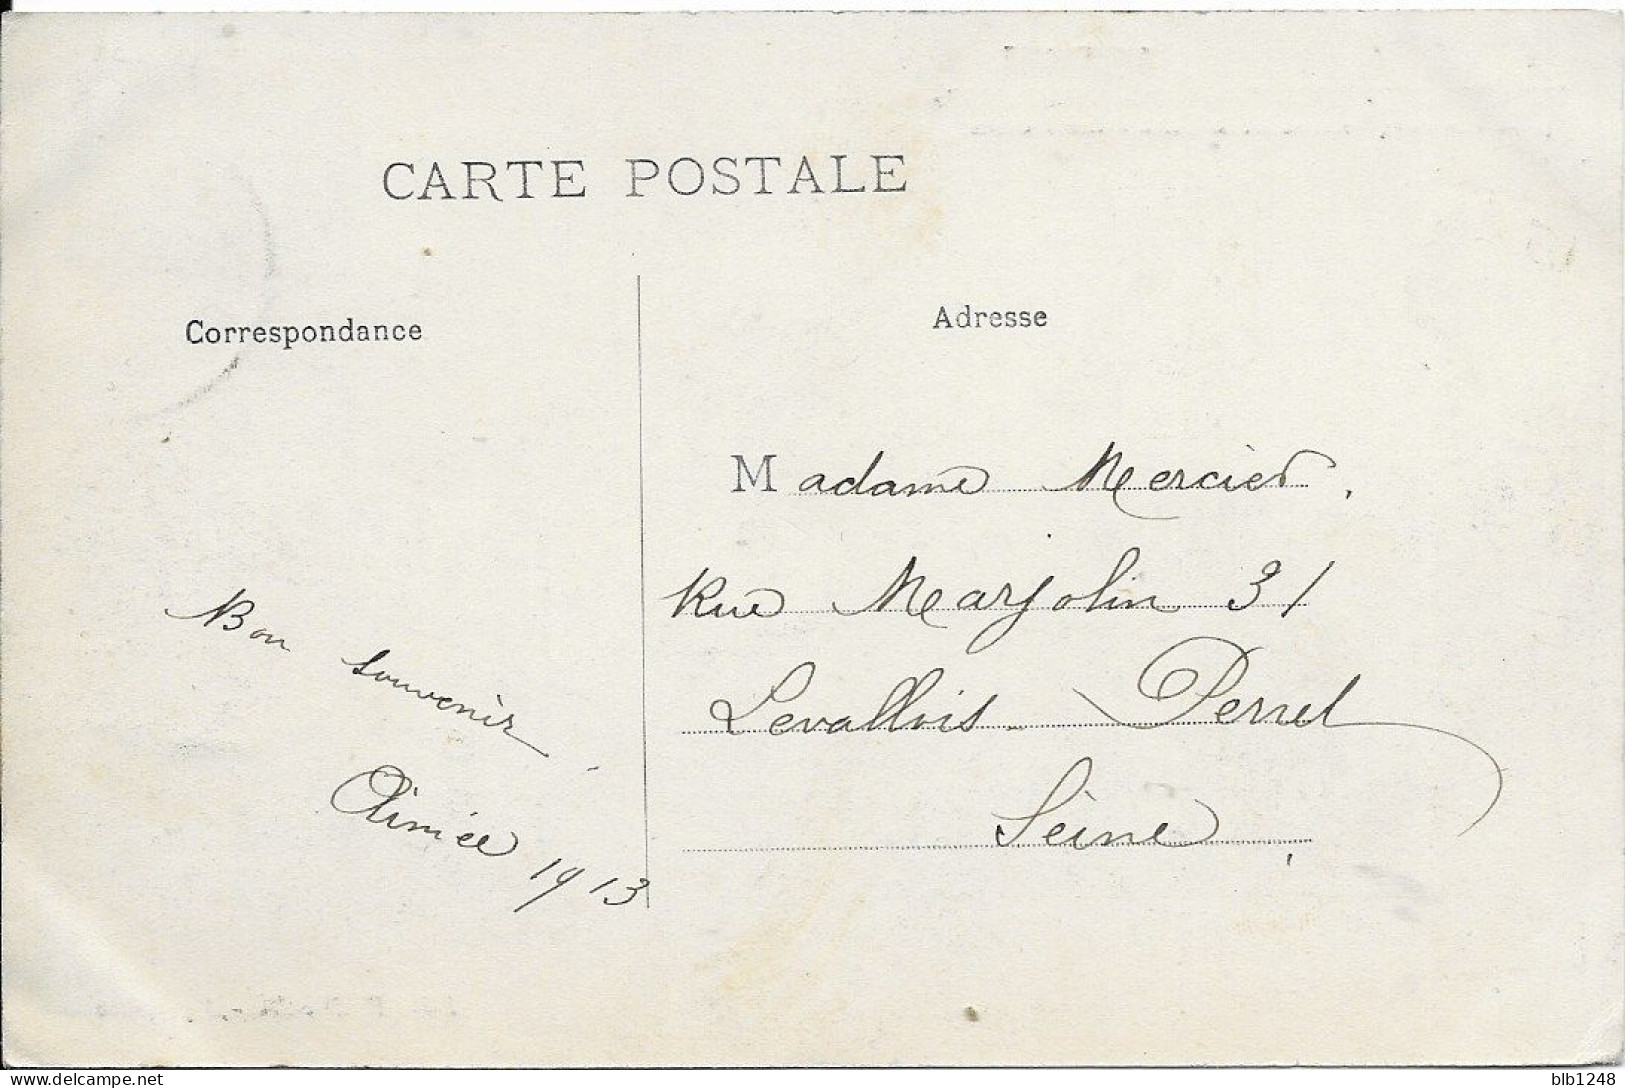 CARTE POSTALE
Correspondance
Bon souvenir
Aimée 1913
Adresse
Madame Mercier.
Rue Marjolin 31
Levallois Perret
Seine
blb1248